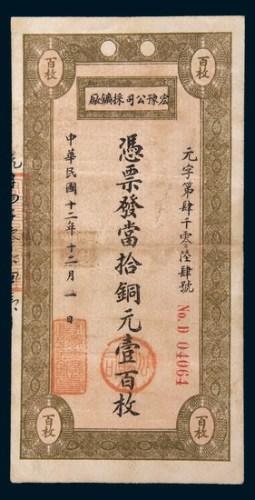 百枚
百枚
宏豫公司採鑛厰
元字第肆千零陸肆號
No. D 04064
憑票發當拾銅元壹百枚
中華民國十二年十二月一日
百枚
百枚